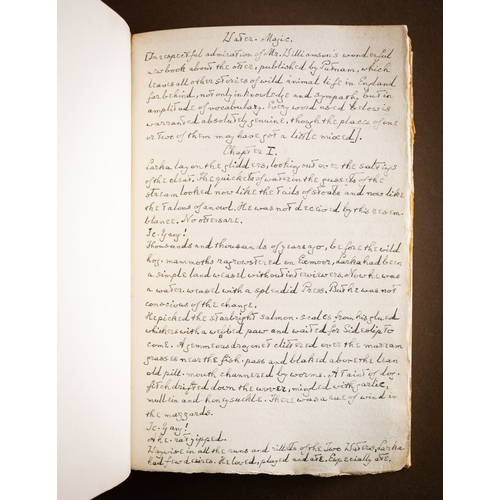 Water. Magic.
[In respectful admiration of Mr. Williamson's wonderful
new book about the otter, published by Putnam, which
leaves all other stories of wild animal life in England
far behind, not only in knowledge and sympathy but in
amplitude of vocabulary. Every word used below is
warranted absolutely genuine, though the places of one
or two of them may have got a little mixed].
Chapter I.
Larka lay on the glidders, looking out over the
of the cleat. The quickets of water in the gussets of the
stream looked now like the tails of stoats and now like
the talons of an owl. He was not deceived by this resem-
blance. No otters are.
Ic-Yang!
Thousands and thousands of years ago, before the wild
hog-mammoths ragrowstered on Exmoor, Larka had been
a simple land weasel without interviewers. Now he was
a water-weasel with a splendid Press. But he was not
conscious of the change.
He picked the starbright salmon-scales from his glued
whiskers with a webbed paw and waited for Sideslip to
come. A gemmeous dragonet clittered over the marram
grasses near the fish-pass and blaked above the lean
old pill-mouth channered by worms. A taint of dog-
fetch drifted down the water, mingled with garlic,
mullein and honeysuckle. There was a sue of wind in
the mazzards.
Ic-Yang!
A he-rat yipped.
Waywise in all the runs and rillets of the Two Waters, Larka
had few desires. He loved, played and ate. Especially ate.